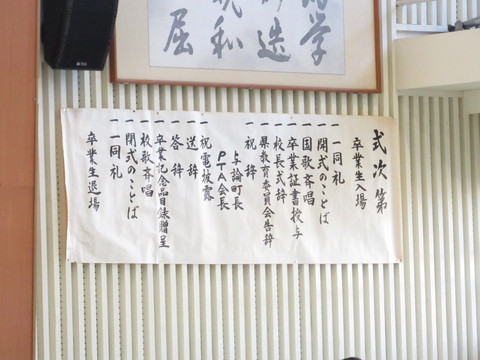 式次第
卒業生入場
一 一同礼
一 開式のことば
一 国歌斉唱
一 卒業証書授与
一 校長式辞
一 県教育委員会告辞
一 祝辞
与論町長
PTA会長
一 祝電披露
一 送辞
一 答辞
一 卒業記念品目録贈呈
一 校歌斉唱
一 閉式のことば
一 一同礼
卒業生退場
学
造
和
屈